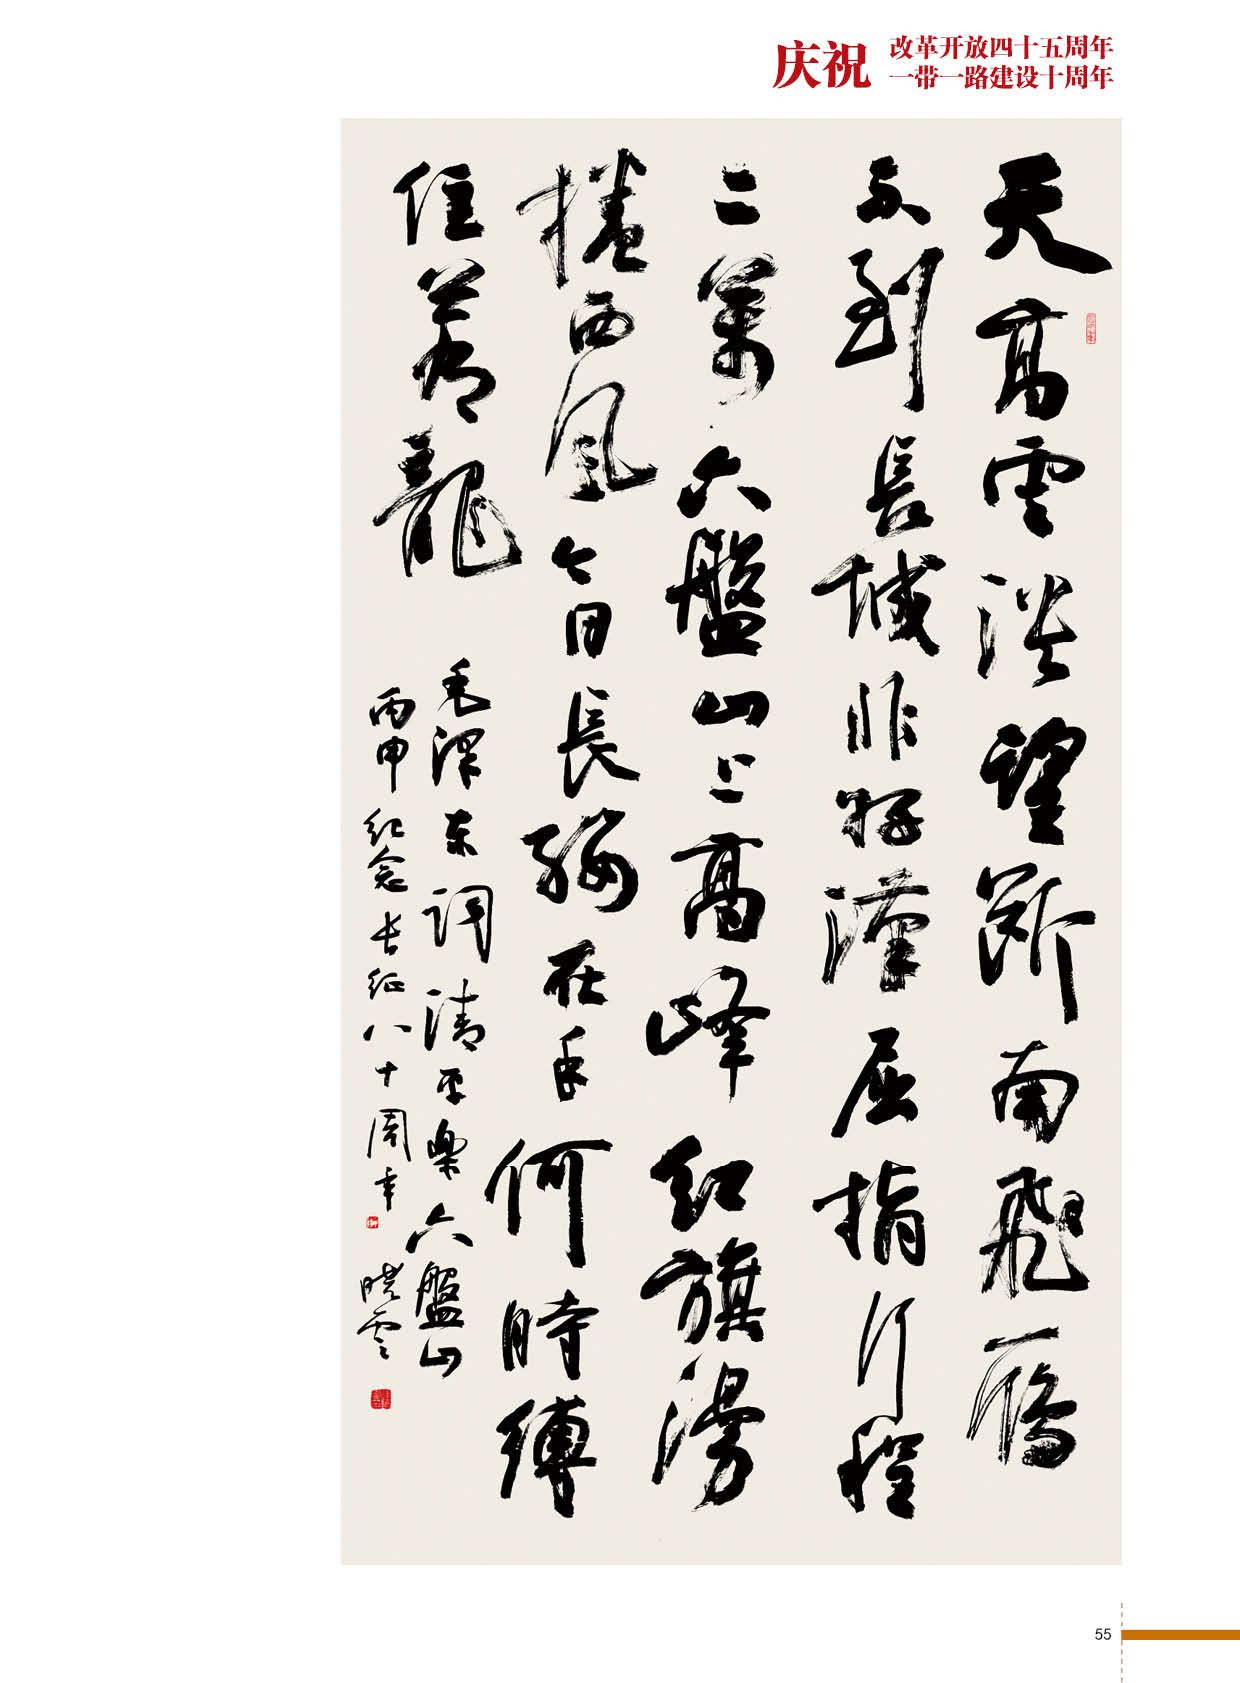 庆祝
改革开放四十五周年
一带一路建设十周年
天高雲淡望斷南飛雁
不到長城非好漢屈指行程
二萬六盤山上高峰红旗漫
捲西風今日長纓在手何時縛
住蒼龍
毛澤东词清平樂六盤山
丙申纪念长征八十周年 晓雲
55